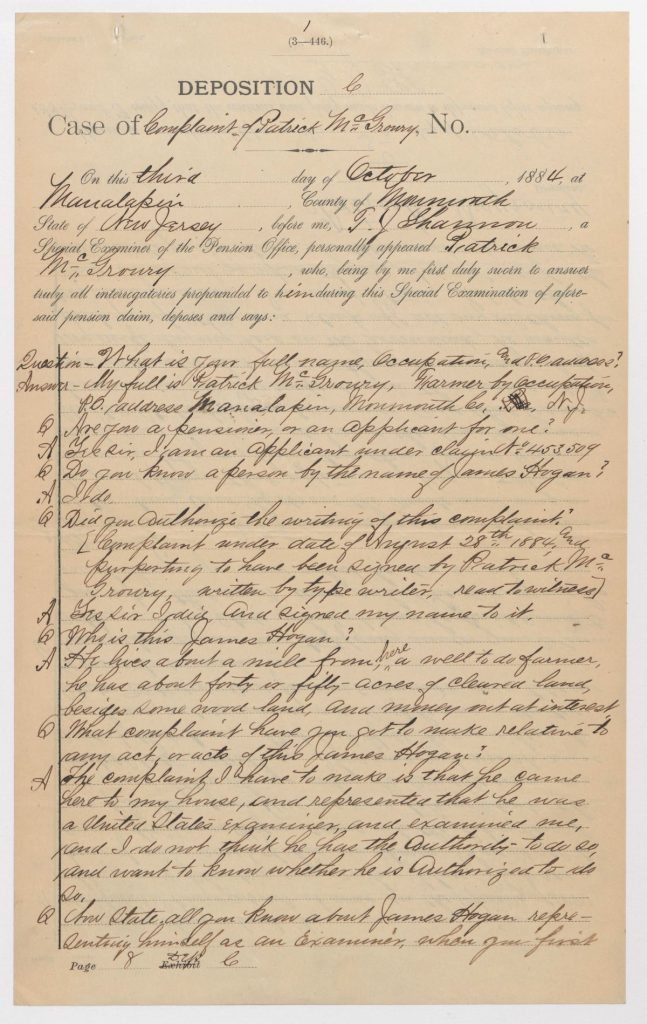 1
(3—446.)
DEPOSITION C
Case of Complaint of Patrick McGroury, No.
On this third day of October, 1884, at
Manalapin, County of Monmouth
State of New Jersey, before me, T. J. Shannon, a
Special Examiner of the Pension Office, personally appeared Patrick
McGroury, who, being by me first duly sworn to answer
truly all interrogatories propounded to him during this Special Examination of afore-
said pension claim, deposes and says:
Question - What is your full name, occupation, and P.O. address?
Answer - My full is Patrick McGroury, Farmer by occupation,
P.O. address Manalapin, Monmouth Co., N.J.
Q Are you a pensioner, or an applicant for one?
A Yes sir, I am an applicant under claim No 453,509
Q Do you know a person by the name of James Hogan?
A I do.
Q Did you authorize the writing of this complaint?
[Complaint under date of August 28th 1884, and
purporting to have been signed by Patrick Mc
Groury, written by type writer, read to witness]
A Yes sir I did, and signed my name to it.
Q Who is this James Hogan?
A He lives about a mile from here, a well to do farmer,
he has about forty or fifty acres of cleared land,
besides some wood land, and money out at interest
Q What complaint have you got to make relative to
any act, or acts of this James Hogan?
A The complaint I have to make is that he came
here to my house, and represented that he was
a United States Examiner, and examined me,
and I do not think he has the authority to do so,
and want to know whether he is authorized to do
so.
Q Now State all you know about James Hogan repre-
senting himself as an Examiner, when you first
Page 8 Exhibit Dep. C